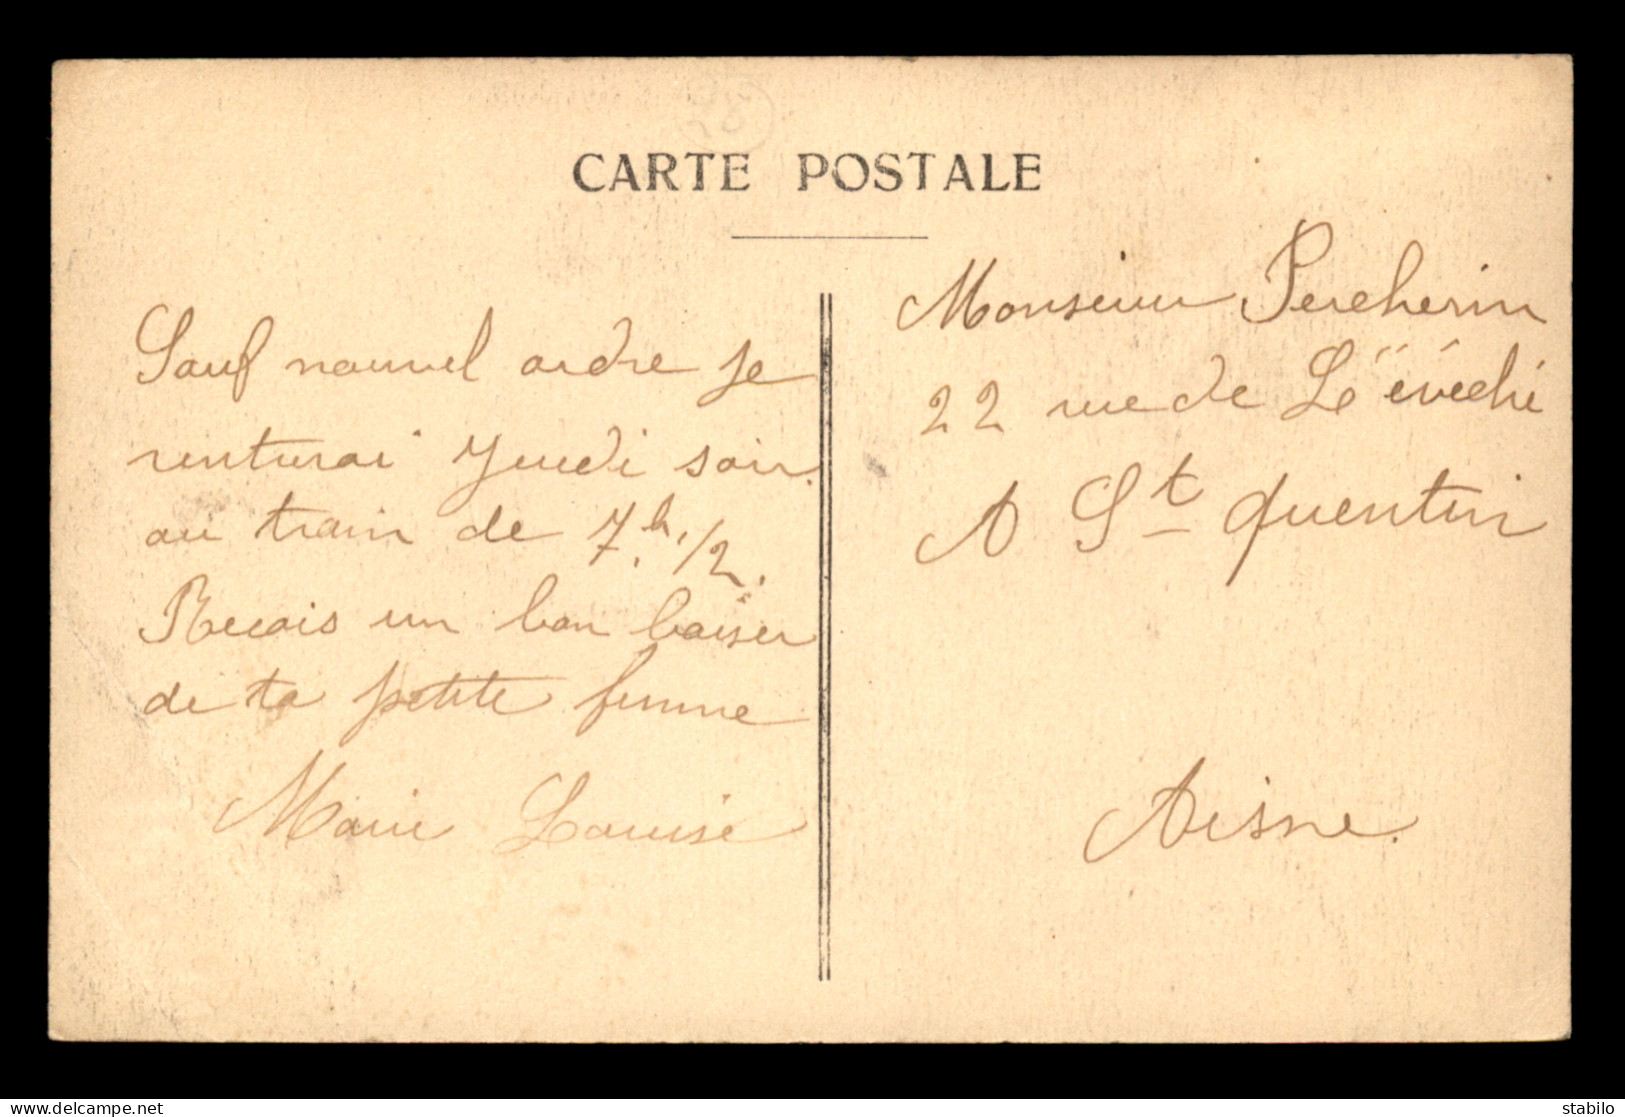 CARTE POSTALE
Sauf nouvel ordre je
rentrerai Jeudi soir
au train de 7.h.1/2.
Recois un bon baiser
de ta petite femme
Marie Louise
Monsieur Percherin
22 rue de L'évéché
A St Quentin
Aisne.
delcampe.net
stabilo